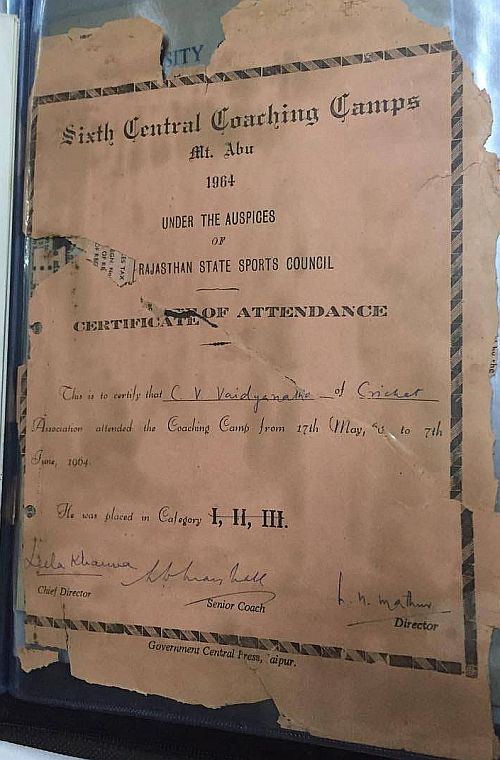 SITY
Sixth Central Coaching Camps
Mt. Abu
1964
UNDER THE AUSPICES
OF
RAJASTHAN STATE SPORTS COUNCIL
CERTIFICATE OF ATTENDANCE
This is to certify that C. V. Vaidyanatha of Cricket
Association attended the Coaching Camp from 17th May, to 7th
June, 1964.
He was placed in Category I, II, III.
Leela Khanna
L. N. Mathur
Chief Director
Senior Coach
Director
Government Central Press, Jaipur.